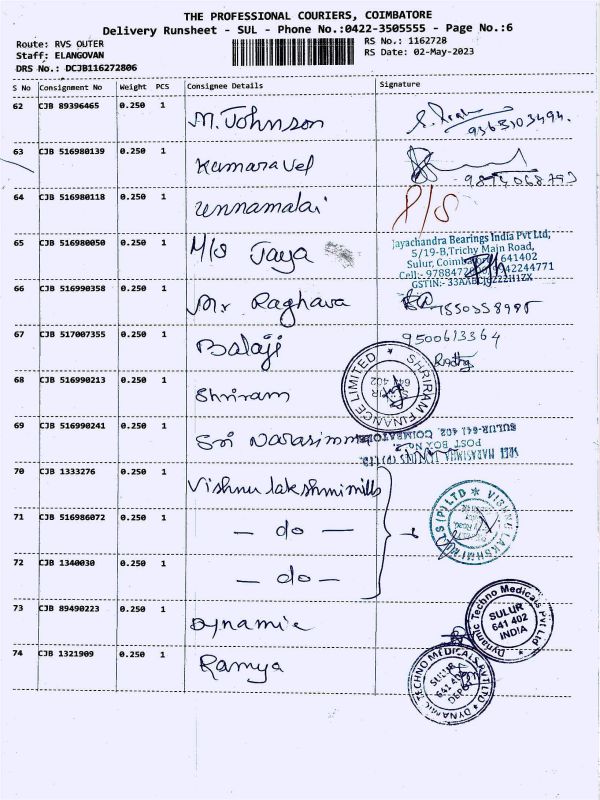 THE PROFESSIONAL COURIERS, COIMBATORE
Delivery Runsheet - SUL - Phone No.:0422-3505555 - Page No.:6
Route: RVS OUTER
RS No.: 1162728
Staff: ELANGOVAN
RS Date: 02-May-2023
DRS No.: DCJB116272806
S No Consignment No Weight PCS Consignee Details Signature
62 CJB 89396465 0.250 1 M. Johnson
9363103494.
63 CJB 516980139 0.250 1 Kumaravel
64 CJB 516980118 0.250 1 unnamalai P/S
65 CJB 516980050 0.250 1 M/s Jaya
Jayachandra Bearings India Pvt Ltd,
5/19-B,Trichy Main Road,
Sulur, 641402
Cell:-
GSTIN:-
66 CJB 516990358 0.250 1 Mr Raghava
67 CJB 517007355 0.250 1 Balaji 9500613364
68 CJB 516990213 0.250 1 Shriram
SHRIRAM FINANCE LIMITED
SULUR
641 402
69 CJB 516990241 0.250 1 Sri Narasimma
SULUR-641 402. COIMBATORE
POST BOX No.2,
70 CJB 1333276 0.250 1 Vishnu lakshmi mills
VISHNU LAKSHMI MILLS (P) LTD
71 CJB 516986072 0.250 1 — do —
72 CJB 1340030 0.250 1 — do —
73 CJB 89490223 0.250 1 Dynamic
Dynamic Techno Medicals Pvt Ltd
SULUR
641 402
INDIA
74 CJB 1321909 0.250 1 Ramya
DYNAMIC TECHNO MEDICALS PVT LTD
SULUR
641 402
DEPOT